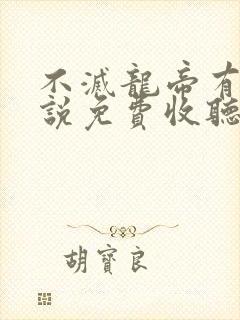 不滅龍帝有
說免費收聽
胡寶良